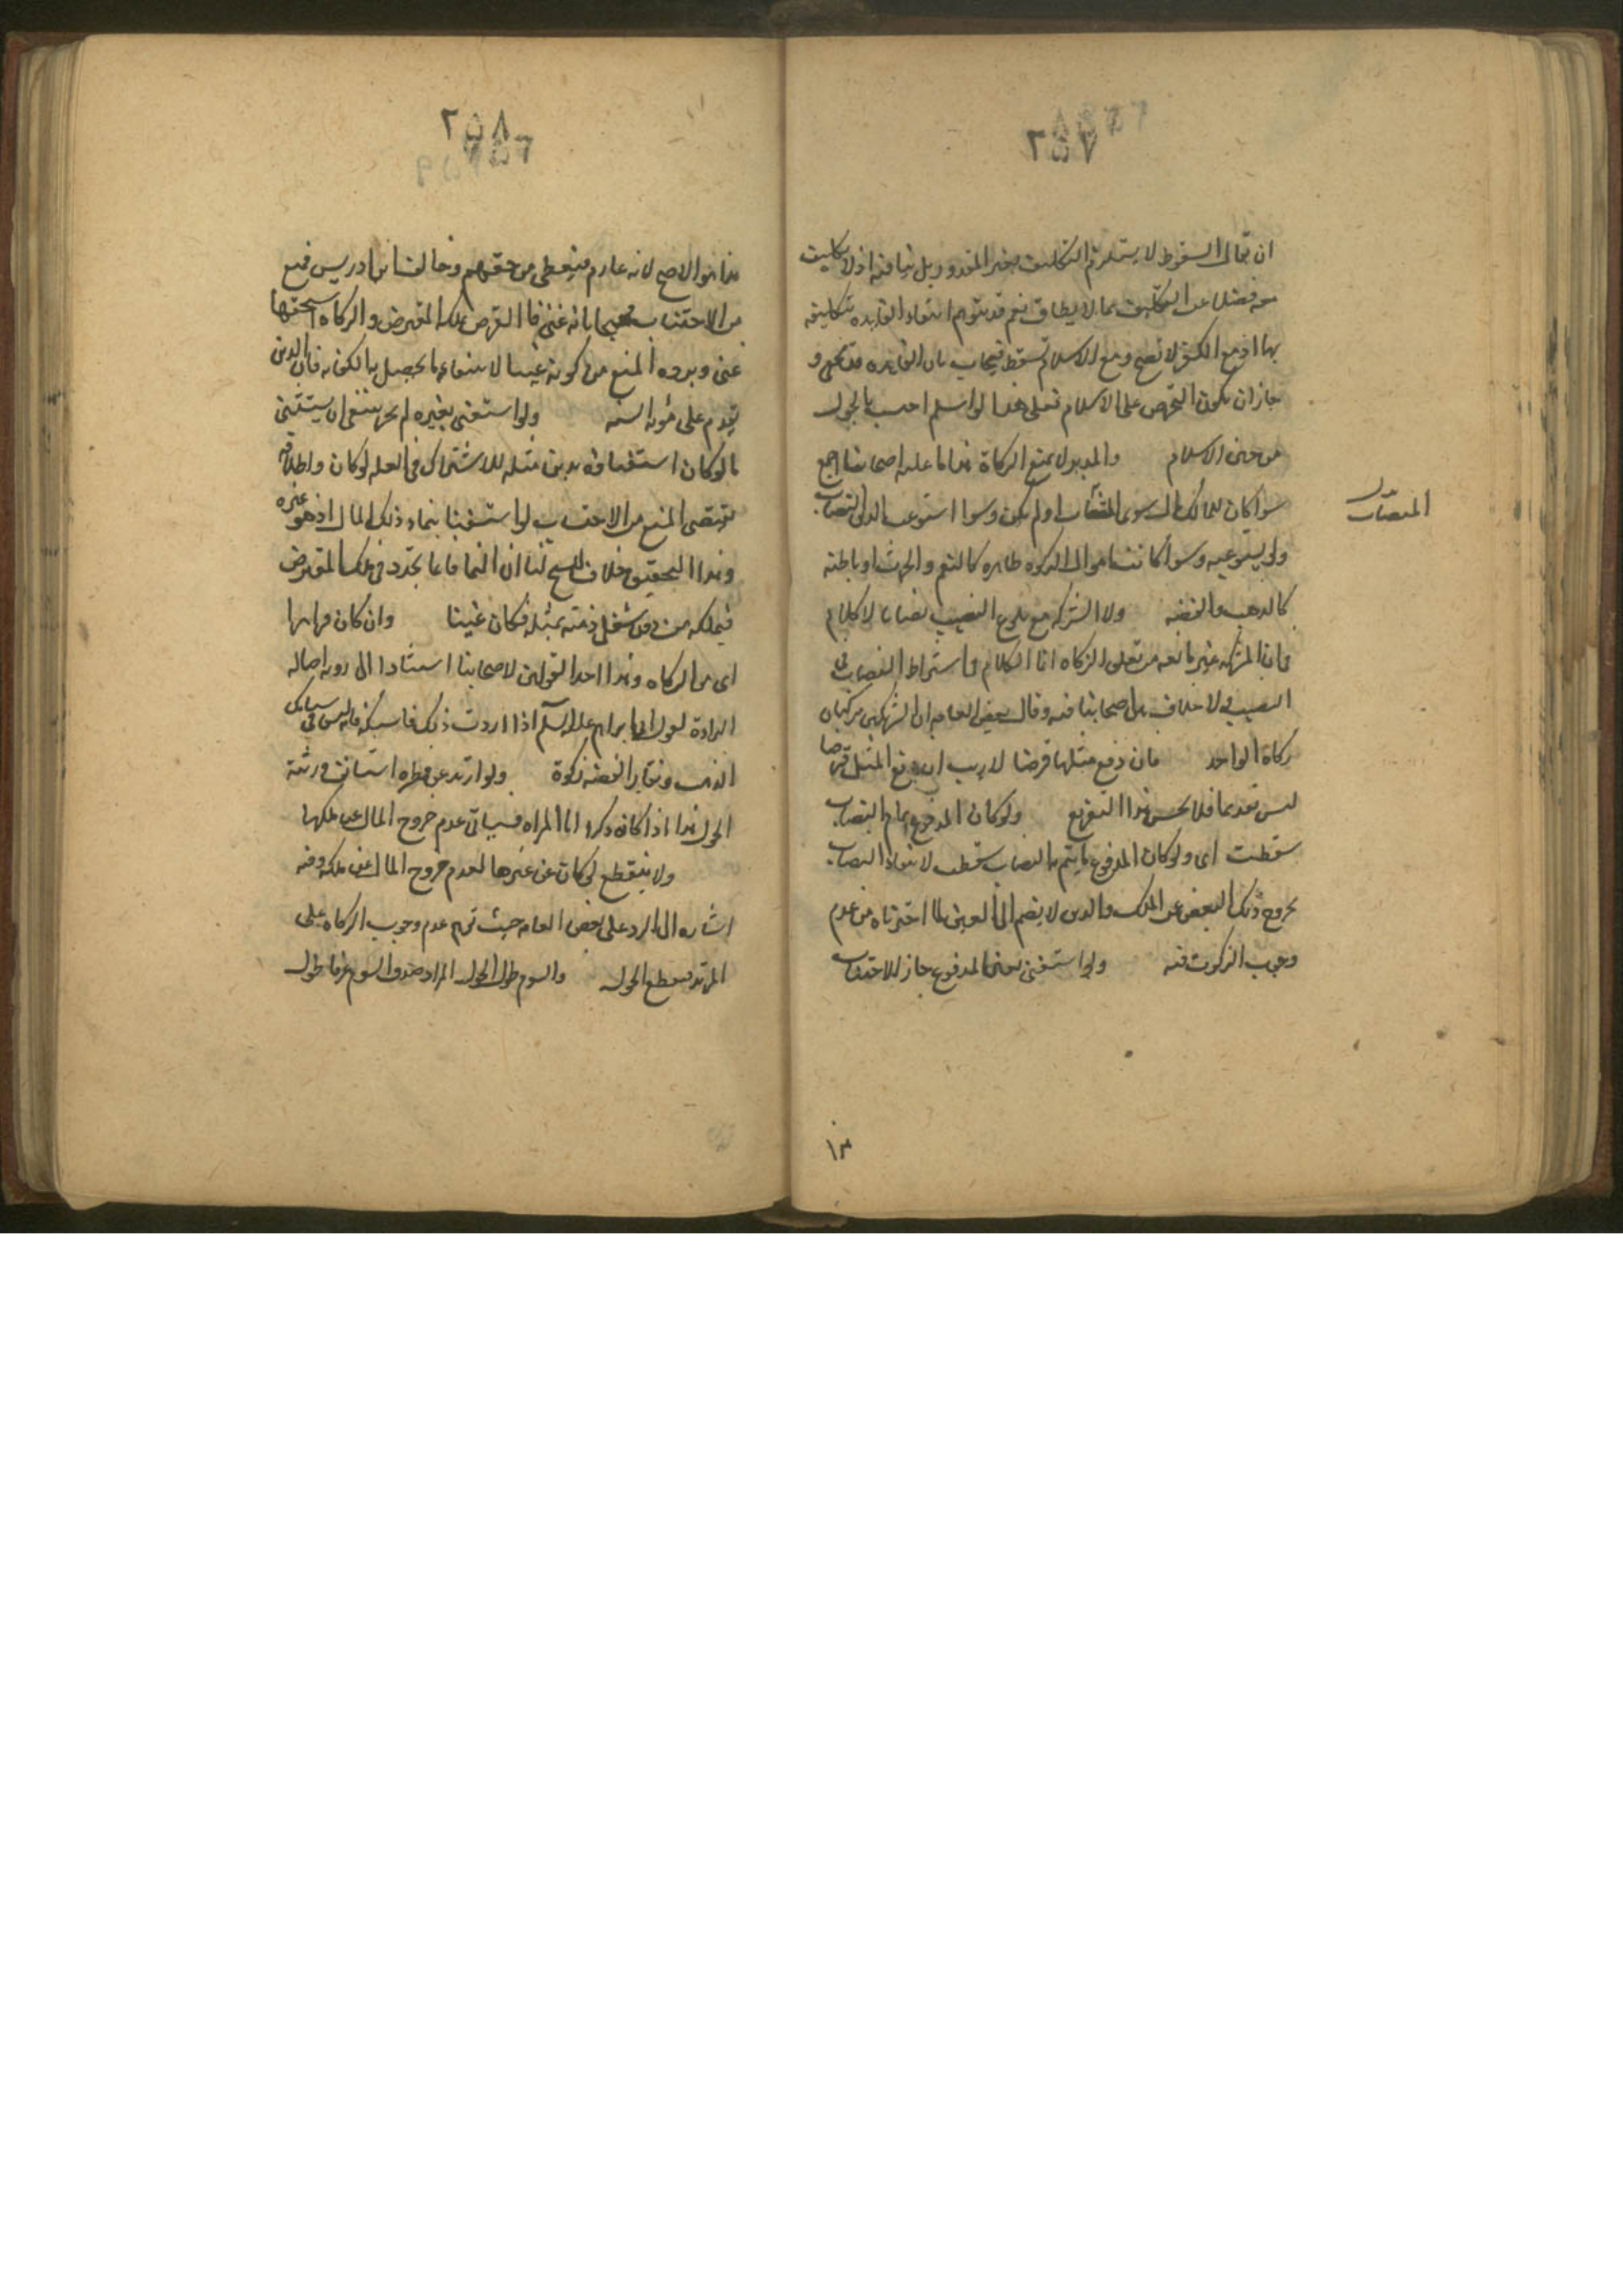 ٢٥٧
ان يقال السقوط لا يستلزم التكليف بغير المقدور بل ينافيه اذ لا تكليف
معه فضلا عن التكليف بما لا يطاق نعم قد يتوهم انتفاء الفايده بتكليفه
بها اذ مع الكفر لا تصح ومع الاسلام تسقط فيجاب بان الفايده
جاز ان يكون التحريص على الاسلام فعلى هذا لو اسلم احتسب بالحول
من حين الاسلام والدين لا يمنع الزكاة هذا ما عليه اصحابنا اجمع
سوا كان للمالك مال سوى النصاب او لم يكن وسوا استوعب الدين النصاب
المنصاب
ولم يستوعبه وسوا كانت اموال الزكوه ظاهره كالنعم والحرث او باطنه
كالذهب والفضه ولا الشركه مع بلوغ النصيب نصابا لا كلام
فان الشركه غير مانعه من تعلق الزكاه انما الكلام في اشتراط النصاب في
النصيب لا خلاف بين اصحابنا فيه وقال بعض العامه ان الشريكين يزكيان
زكاة الواحد فان دفع مثلها قرضا لا ريب ان دفع المثل قرضا
ليس تقديما فلا يحسن هذا التفريع ولو كان المدفوع تمام النصاب
سقطت اى ولو كان المدفوع ما يتم به النصاب سقطت لانتفاء النصاب
بخروج ذلك البعض عن الملك والدين لا يضم الى العين لما اخترناه من عدم
وجوب الزكوت فيه ولو استغنى بعين المدفوع جاز الاحتساب
١٣
٢٥٨
هذا هو الاصح لانه غارم فيعطى من حقهم وخالف ابن ادريس فمنع
من الاحتساب محتجا بانه غنى فان القرض يملكه المقترض والزكاه لا يستحقها
غنى ويرده المنع من كونه غنيا لانتفاء ما يحصل به الكفايه فان الدين
يقدم على مؤنه السنه ولو استغنى بغيره لم يجز ينبغى ان يستثنى
ما لو كان استغناؤه بدين مثله للاشتراك فى العله لو كان واطلاقه
يقتضى المنع من الاحتساب لو استغنى بنماء ذلك المال اذ هو غيره
وهذا التحقيق خلاف للشيخ لنا ان النما فانما تجدد فى ملك المقترض
فيملكه من دون شغل ذمته بمثله فكان غنيا وان كان فرارا
اى من الزكاه وهذا احد القولين لاصحابنا استنادا الى رويه اصاله
البراءة لقول ابى ابراهيم عليه السلم اذا اردت ذلك فاسبكه فانه ليس فى سبايك
الذهب ونقار الفضه زكوة ولو ارتد عن فطره استانف ورثته
الحول هذا اذا كان ذكرا اما المراه فسياتى عدم خروج المال عن ملكها
ولا ينقطع لو كان عن غيرها لعدم خروج المال عن ملكه وفيه
اشاره الى الرد على بعض العامه حيث توهم عدم وجوب الزكاه على
المرتد فيقطع الحول والسوم طول الحول المراد صدق السوم عرفا طول